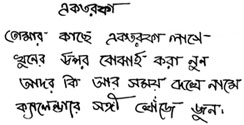 একতরফা
তোমার কাছে একতরফা লাগে-
খুনের উপর বোঝাই করা নুন
আদর কি আর সময় দেখে নামে
ক্যালেন্ডারে সঙ্গী খোঁজে জুন।